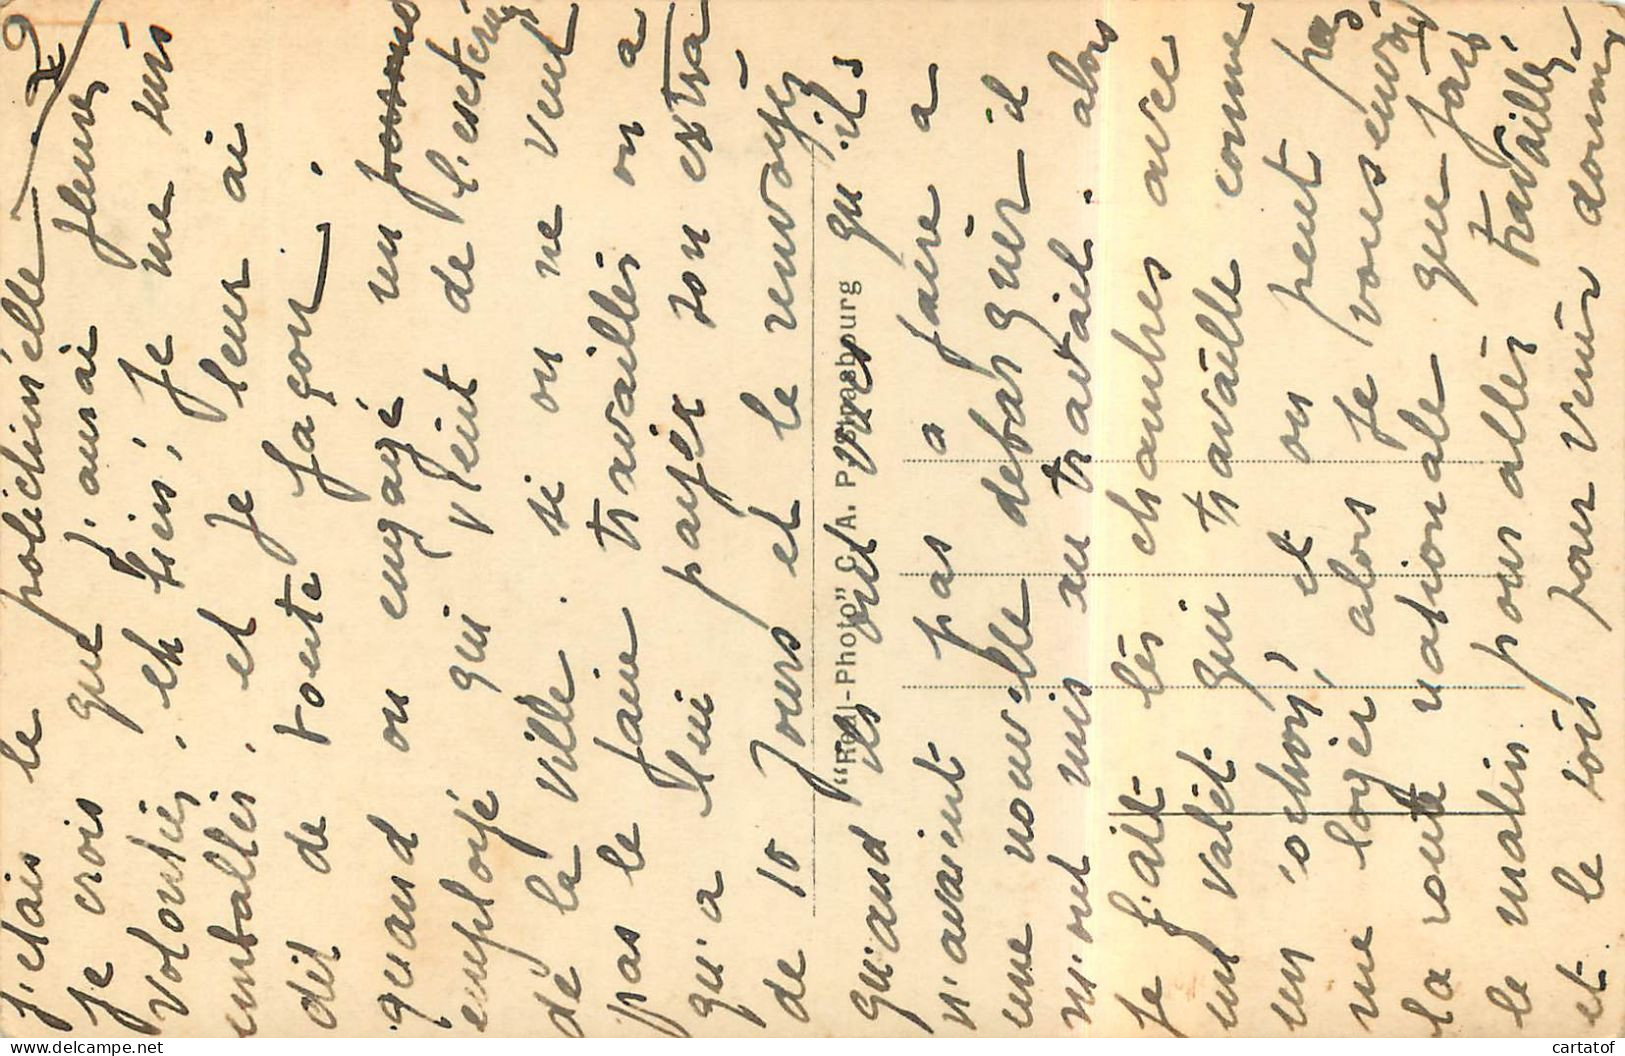 j'étais le polichinelle 
je crois que j'aurai pleurés
volontiés, eh bien; je me suis
emballés, et je leur ai
dit de toute façon,.
quand on engagé un personne
employé qui vient de l'exterieur
de la ville. si on ne veut
pas le faire travaillés on a
qu'a lui payer son extra
de 10 jours et le renvoyer
quand ils ont vues qu'ils
n'avaient pas a faire a
une nouvelle debarquer il
m'ont mis au travail. alors
Je fait les chambres avec
un valet qui travaille comme
un 'ochon, et on peut pas
me loger alors Je vous
la route nationale que fais
le matin pour allés travaillés
et le soir pour venir
"Real-Photo" C. A. P. Strasbourg